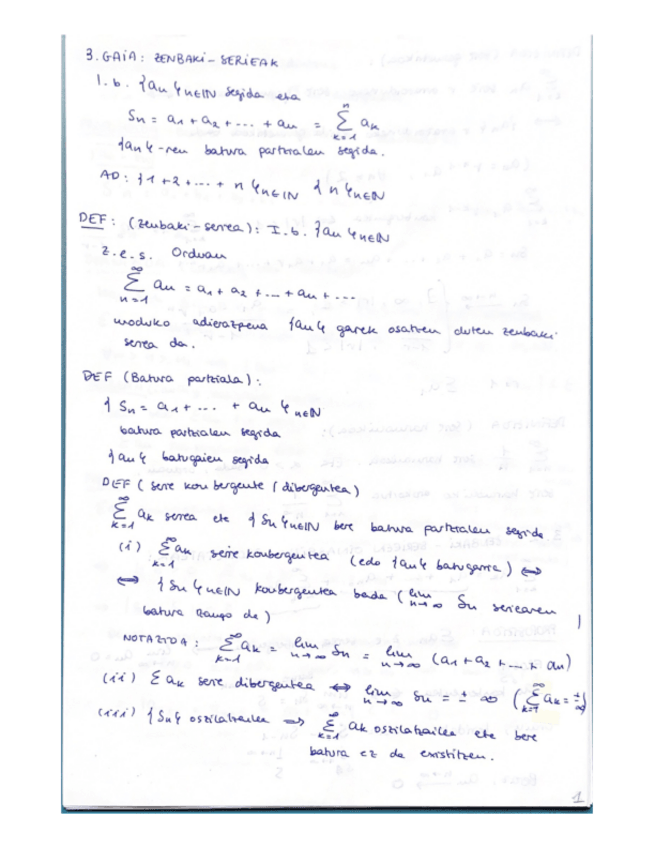 3. GAIA: ZENBAKI-SERIEAK
I.b. {an}n∈IN segida eta
Sn = a1 + a2 + ... + an = ∑_{k=1}^{n} ak
{an}-ren batura partzialen segida.
AD: {1+2+...+n}n∈IN {n}n∈IN
DEF: (Zenbaki-seriea): I.b. {an}n∈IN
z.e.s. Orduan
∑_{n=1}^{∞} an = a1 + a2 + ... + an + ...
moduko adierazpena {an} garek osatzen duten zenbaki
seriea da.
DEF (Batura partziala):
{Sn = a1 + ... + an}n∈IN
batura partzialen segida
{an} batugaien segida
DEF (serie konbergente / dibergentea)
∑_{k=1}^{∞} ak seriea eta {Sn}n∈IN bere batura partzialen segida.
(i) ∑_{k=1}^{∞} an serie konbergentea (edo {an} batugarria) ⇔
⇔ {Sn}n∈IN konbergentea bada (lim_{n→∞} Sn seriearen
batura izango da)
NOTAZIOA: ∑_{k=1}^{∞} ak = lim_{n→∞} Sn = lim_{n→∞} (a1 + a2 + ... + an)
(ii) ∑ak serie dibergentea ⇔ lim_{n→∞} Sn = ± ∞ (∑_{k=1}^{∞} ak = ±∞)
(iii) {Sn} oszilatzailea ⇒ ∑_{k=1}^{∞} ak oszilatzailea eta bere
batura ez da existitzen.
1